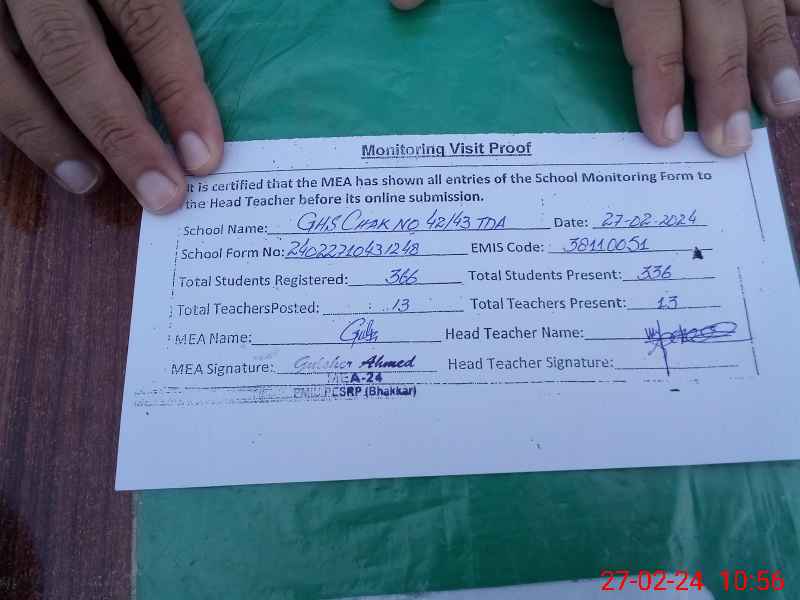 Monitoring Visit Proof
It is certified that the MEA has shown all entries of the School Monitoring Form to
the Head Teacher before its online submission.
School Name: GHS CHAK NO 42/43 TDA Date: 27-02-2024
School Form No: 24022710431248 EMIS Code: 38110051
Total Students Registered: 366 Total Students Present: 336
Total TeachersPosted: 13 Total Teachers Present: 13
MEA Name: Head Teacher Name:
MEA Signature: Gulsher Ahmed Head Teacher Signature:
MEA-24
PESRP (Bhakkar)
27-02-24 10:56